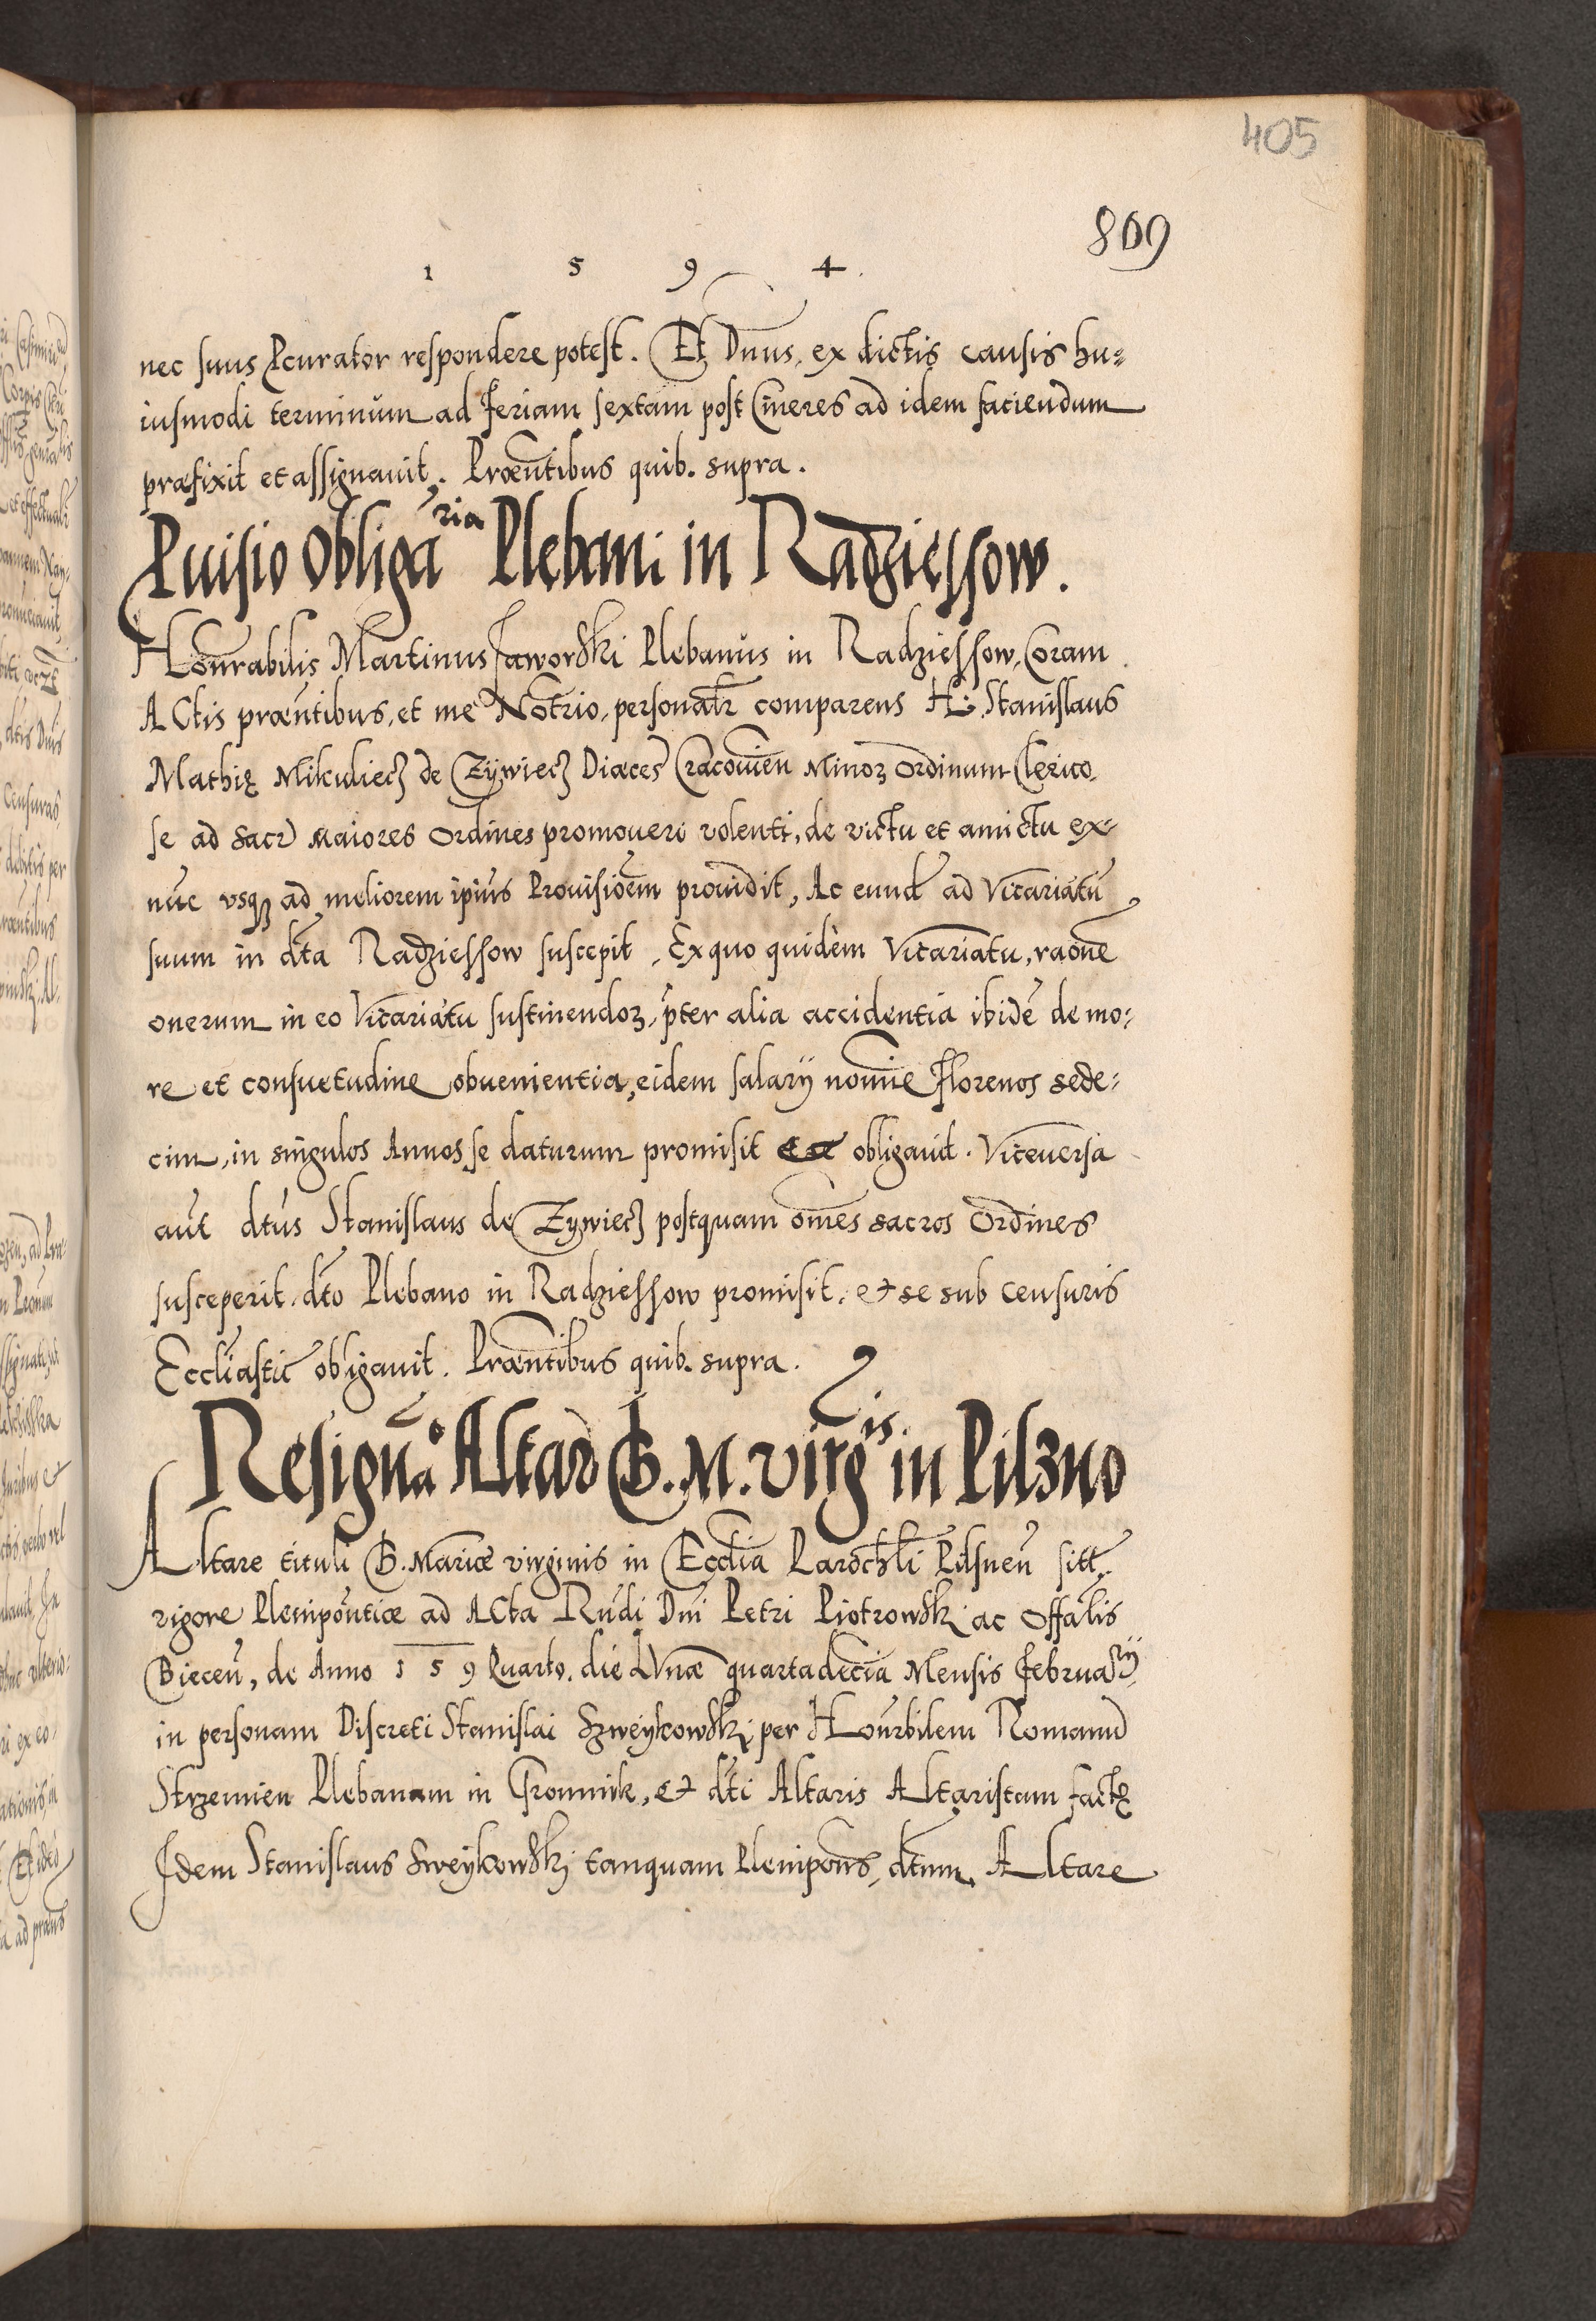 405
809
1 5 9 4
nec suus Pcurator respondere potest. Et Dnus, ex dictis causis hu=
iusmodi terminum ad feriam sextam post Cineres ad idem faciendum
præfixit et assignauit. Præntibus quib. supra.
Puisio Obligaria Plebani in Radziessow.
Honrabilis Martinus Jaworski Plebanus in Radziessow, Coram
ACtis præntibus, et me Notrio, personalr comparens H. Stanislaus
Mathię Mikuliecz de Zywiecz Diæces Cracouien Minorꝫ Ordinum Clerico
se ad sacr maiores Ordines promoueri volenti, de victu et amictu ex
nuc vsqꝫ ad meliorem ipius Prouisioem prouidit, Ac eund ad Vicariatu
suum in dta Radziessow suscepit. Ex quo quidem Vicariatu, raone
onerum in eo Vicariatu sustinendoꝫ, pter alia accidentia ibide de mo=
re et consuetudine obuenientia, eidem salary nomine florenos sede=
cim, in singulos Annos se daturum promisit obligauit. Viceuersa
aut dtus Stanislaus de Zywiecz postquam omes sacros Ordines
susceperit. dto Plebano in Radziessow promisit. et se sub censuris
Eccliastic obligauit. Præntibus quib. supra.
Resigna° Altar B. M. virgis in Pilzno
Altare tituli B. Mariæ virginis in Ecclia Parochli Pilsnen sitt
rigore Plenipontiæ ad ACta Rndi Dni Petri Piotrowski ac Offalis
Biecen, de Anno 1 5 9 Quarto. die Lunæ quartadecia Mensis Februarij
in personam Discreti Stanislai Szweykowski per Honrbilem Romanu
Strzemien Plebanum in Gromnik, et dti Altaris Altaristam factę
Idem Stanislaus Sweykowski tanquam Plenipons, dtum Altare